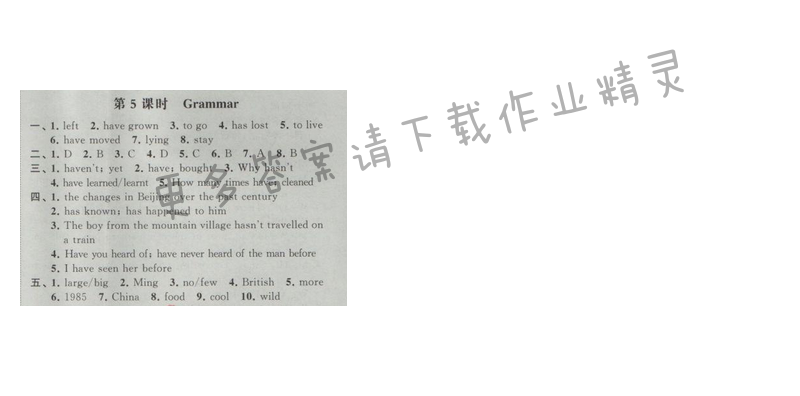 第 5 课时 Grammar
一、1. left 2. have grown 3. to go 4. has lost 5. to live
6. have moved 7. lying 8. stay
二、1. D 2. B 3. C 4. D 5. C 6. B 7. A 8. B
三、1. haven't; yet 2. have; bought 3. Why hasn't
4. have learned/learnt 5. How many times have; cleaned
四、1. the changes in Beijing over the past century
2. has known; has happened to him
3. The boy from the mountain village hasn't travelled on
a train
4. Have you heard of; have never heard of the man before
5. I have seen her before
五、1. large/big 2. Ming 3. no/few 4. British 5. more
6. 1985 7. China 8. food 9. cool 10. wild
更多答案请下载作业精灵